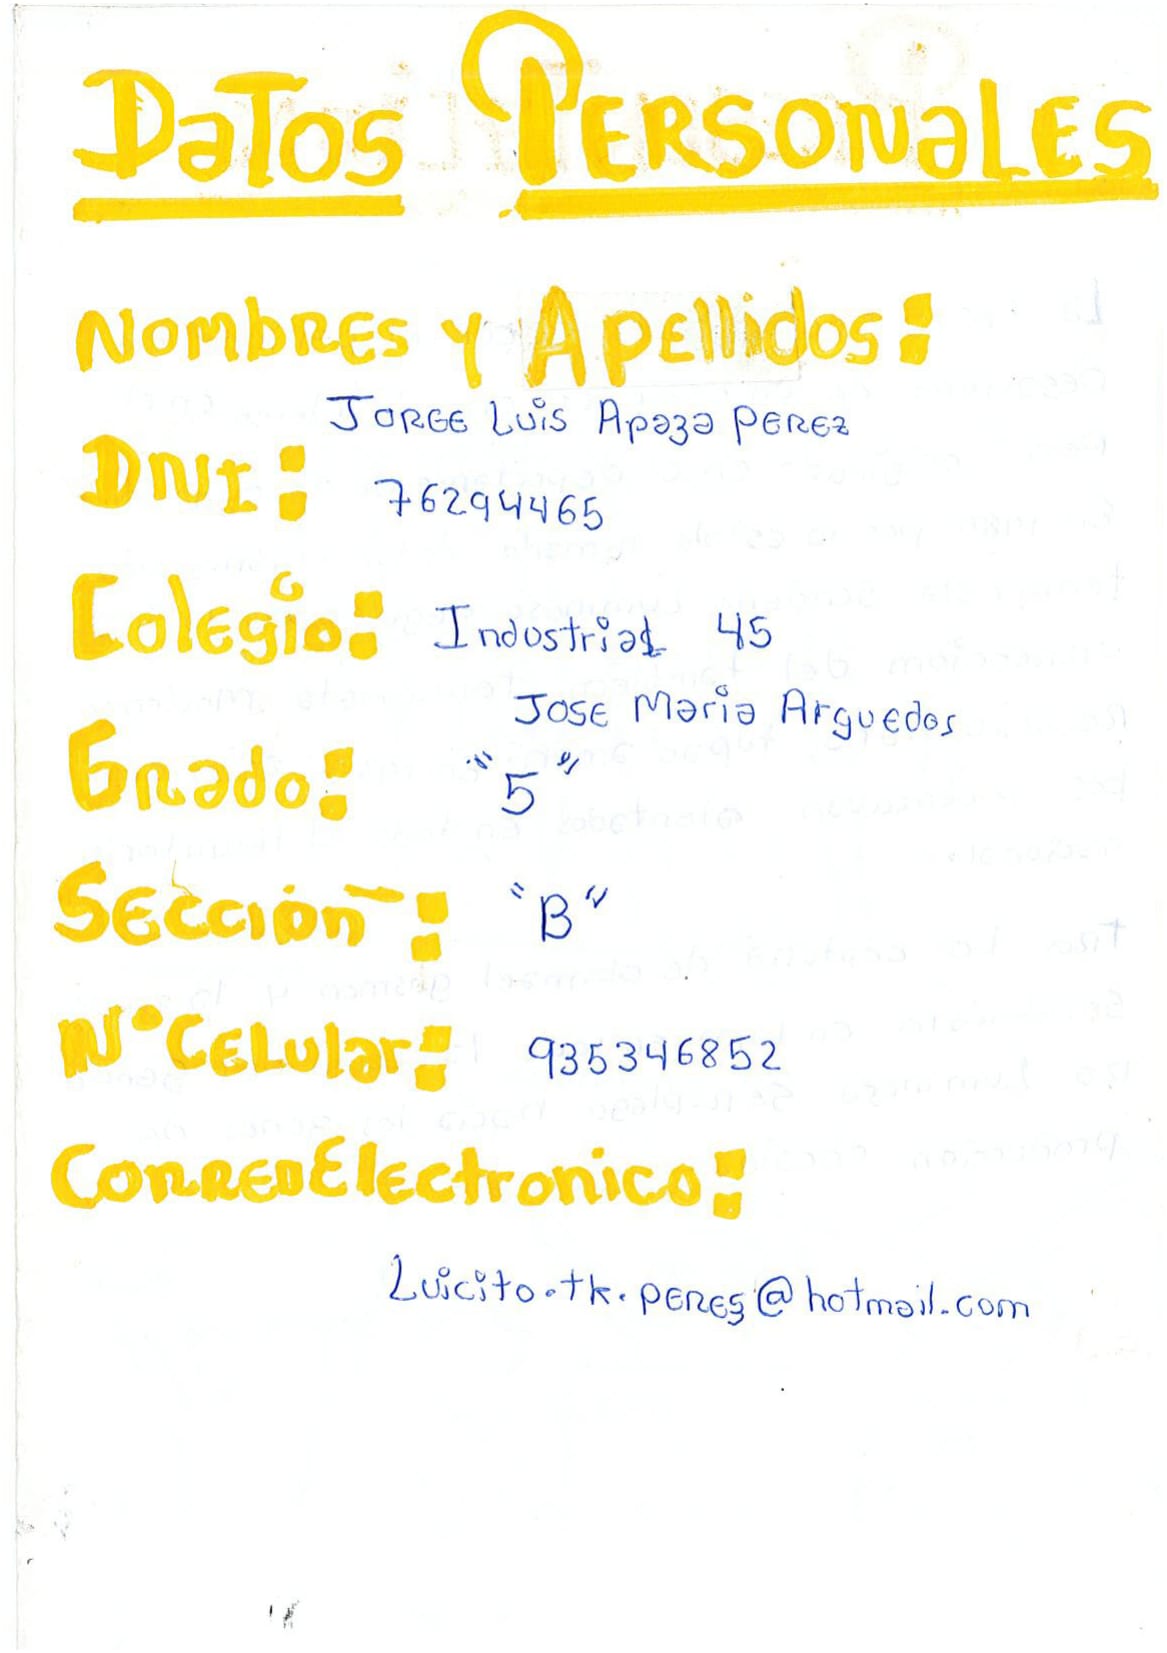 DaTos PERSONaLES
NombREs y ApEllidos:
JORGE Luis Apaza PEREZ
DNI:
76294465
ColEgio:
Industrial 45
JOSE Maria Arguedas
Grado:
"5"
SEcción:
"B"
N° CELular:
935346852
CorrEo ElEctronico:
Luicito.tk.peres@hotmail.com